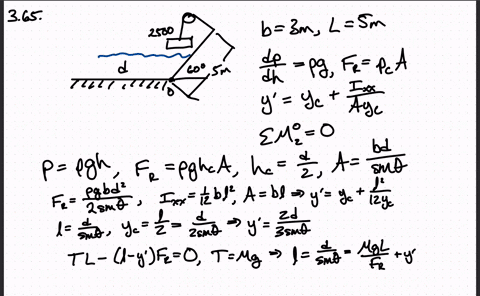 3.65.
2500
d
60°
5m
O
b = 3m, L = 5m
dp/dh = ρg, F_R = p_c A
y' = y_c + I_xx/(A y_c)
ΣM_z^0 = 0
P = ρgh, F_R = ρg h_c A, h_c = d/2, A = bd/sinθ
F_R = ρgbd²/(2sinθ), I_xx = 1/12 bl³, A = bl ⇒ y' = y_c + l²/(12y_c)
l = d/sinθ, y_c = l/2 = d/(2sinθ) ⇒ y' = 2d/(3sinθ)
TL - (l-y')F_R = 0, T = Mg ⇒ l = d/sinθ = MgL/F_R + y'